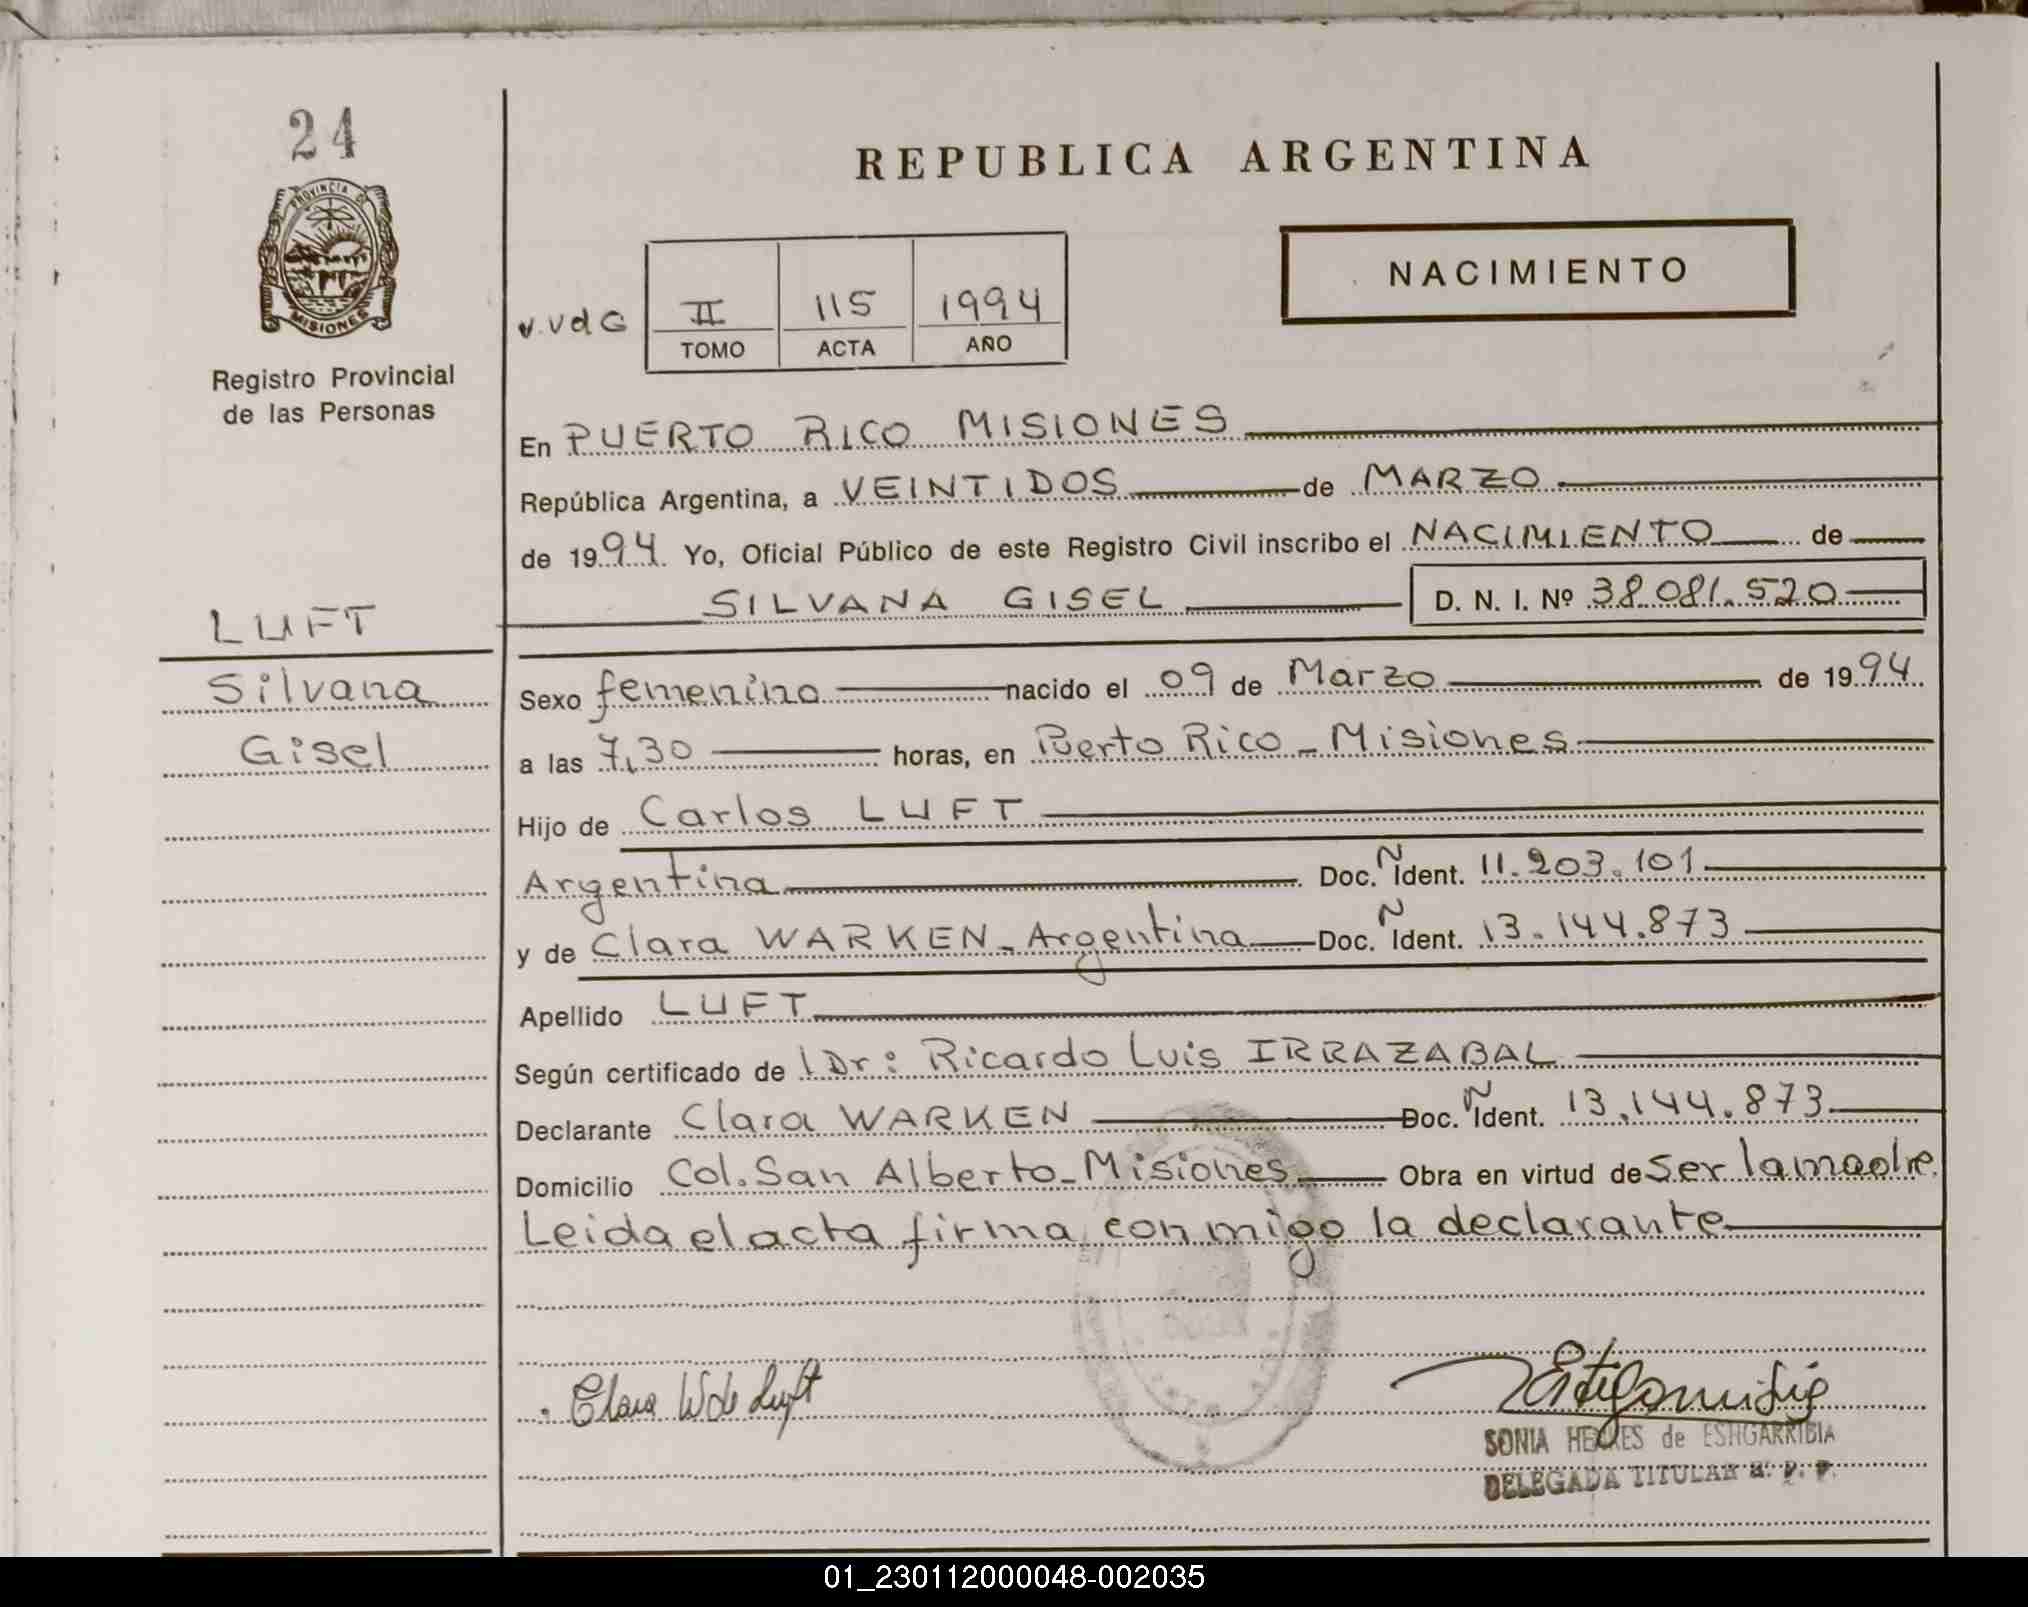 24
PROVINCIA DE
MISIONES
Registro Provincial
de las Personas
LUFT
Silvana
Gisel
REPUBLICA ARGENTINA
NACIMIENTO
v.vdG
II 115 1994
TOMO ACTA AÑO
En PUERTO RICO MISIONES
República Argentina, a VEINTIDOS de MARZO
de 1994 Yo, Oficial Público de este Registro Civil inscribo el NACIMIENTO de
SILVANA GISEL D. N. I. Nº 38.081.520
Sexo femenino nacido el 09 de Marzo de 1994
a las 7,30 horas, en Puerto Rico - Misiones
Hijo de Carlos LUFT
Argentina Doc. Ñ Ident. 11.203.101
y de Clara WARKEN - Argentina Doc. Ñ Ident. 13.144.873
Apellido LUFT
Según certificado de l Dr: Ricardo Luis IRRAZABAL
Declarante Clara WARKEN Doc. Ñ Ident. 13.144.873
Domicilio Col. San Alberto - Misiones Obra en virtud de ser la madre.
Leida el acta firma conmigo la declarante
Clara W de Luft
SONIA de ESHGARRIBIA
DELEGADA TITULAR R. P. P.
01_230112000048-002035